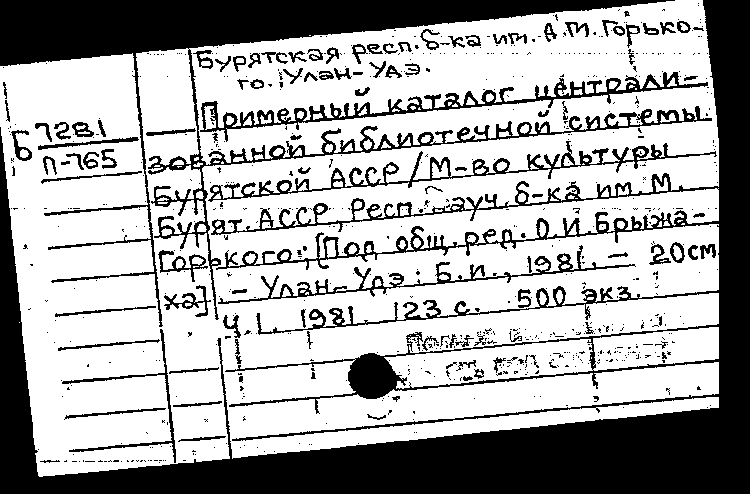 Бурятская респ. б-ка им. А.М. Горько-
го. Улан-Удэ.
Б 7281
П-765
Примерный каталог централи-
зованной библиотечной системы
Бурятской АССР / М-во культуры
Бурят. АССР, Респ. науч. б-ка им. М.
Горького; [Под общ. ред. О.И. Брыжа-
ха]. - Улан-Удэ : Б.и., 1981. - 20см
Ч.1. 1981. 123 с. 500 экз.